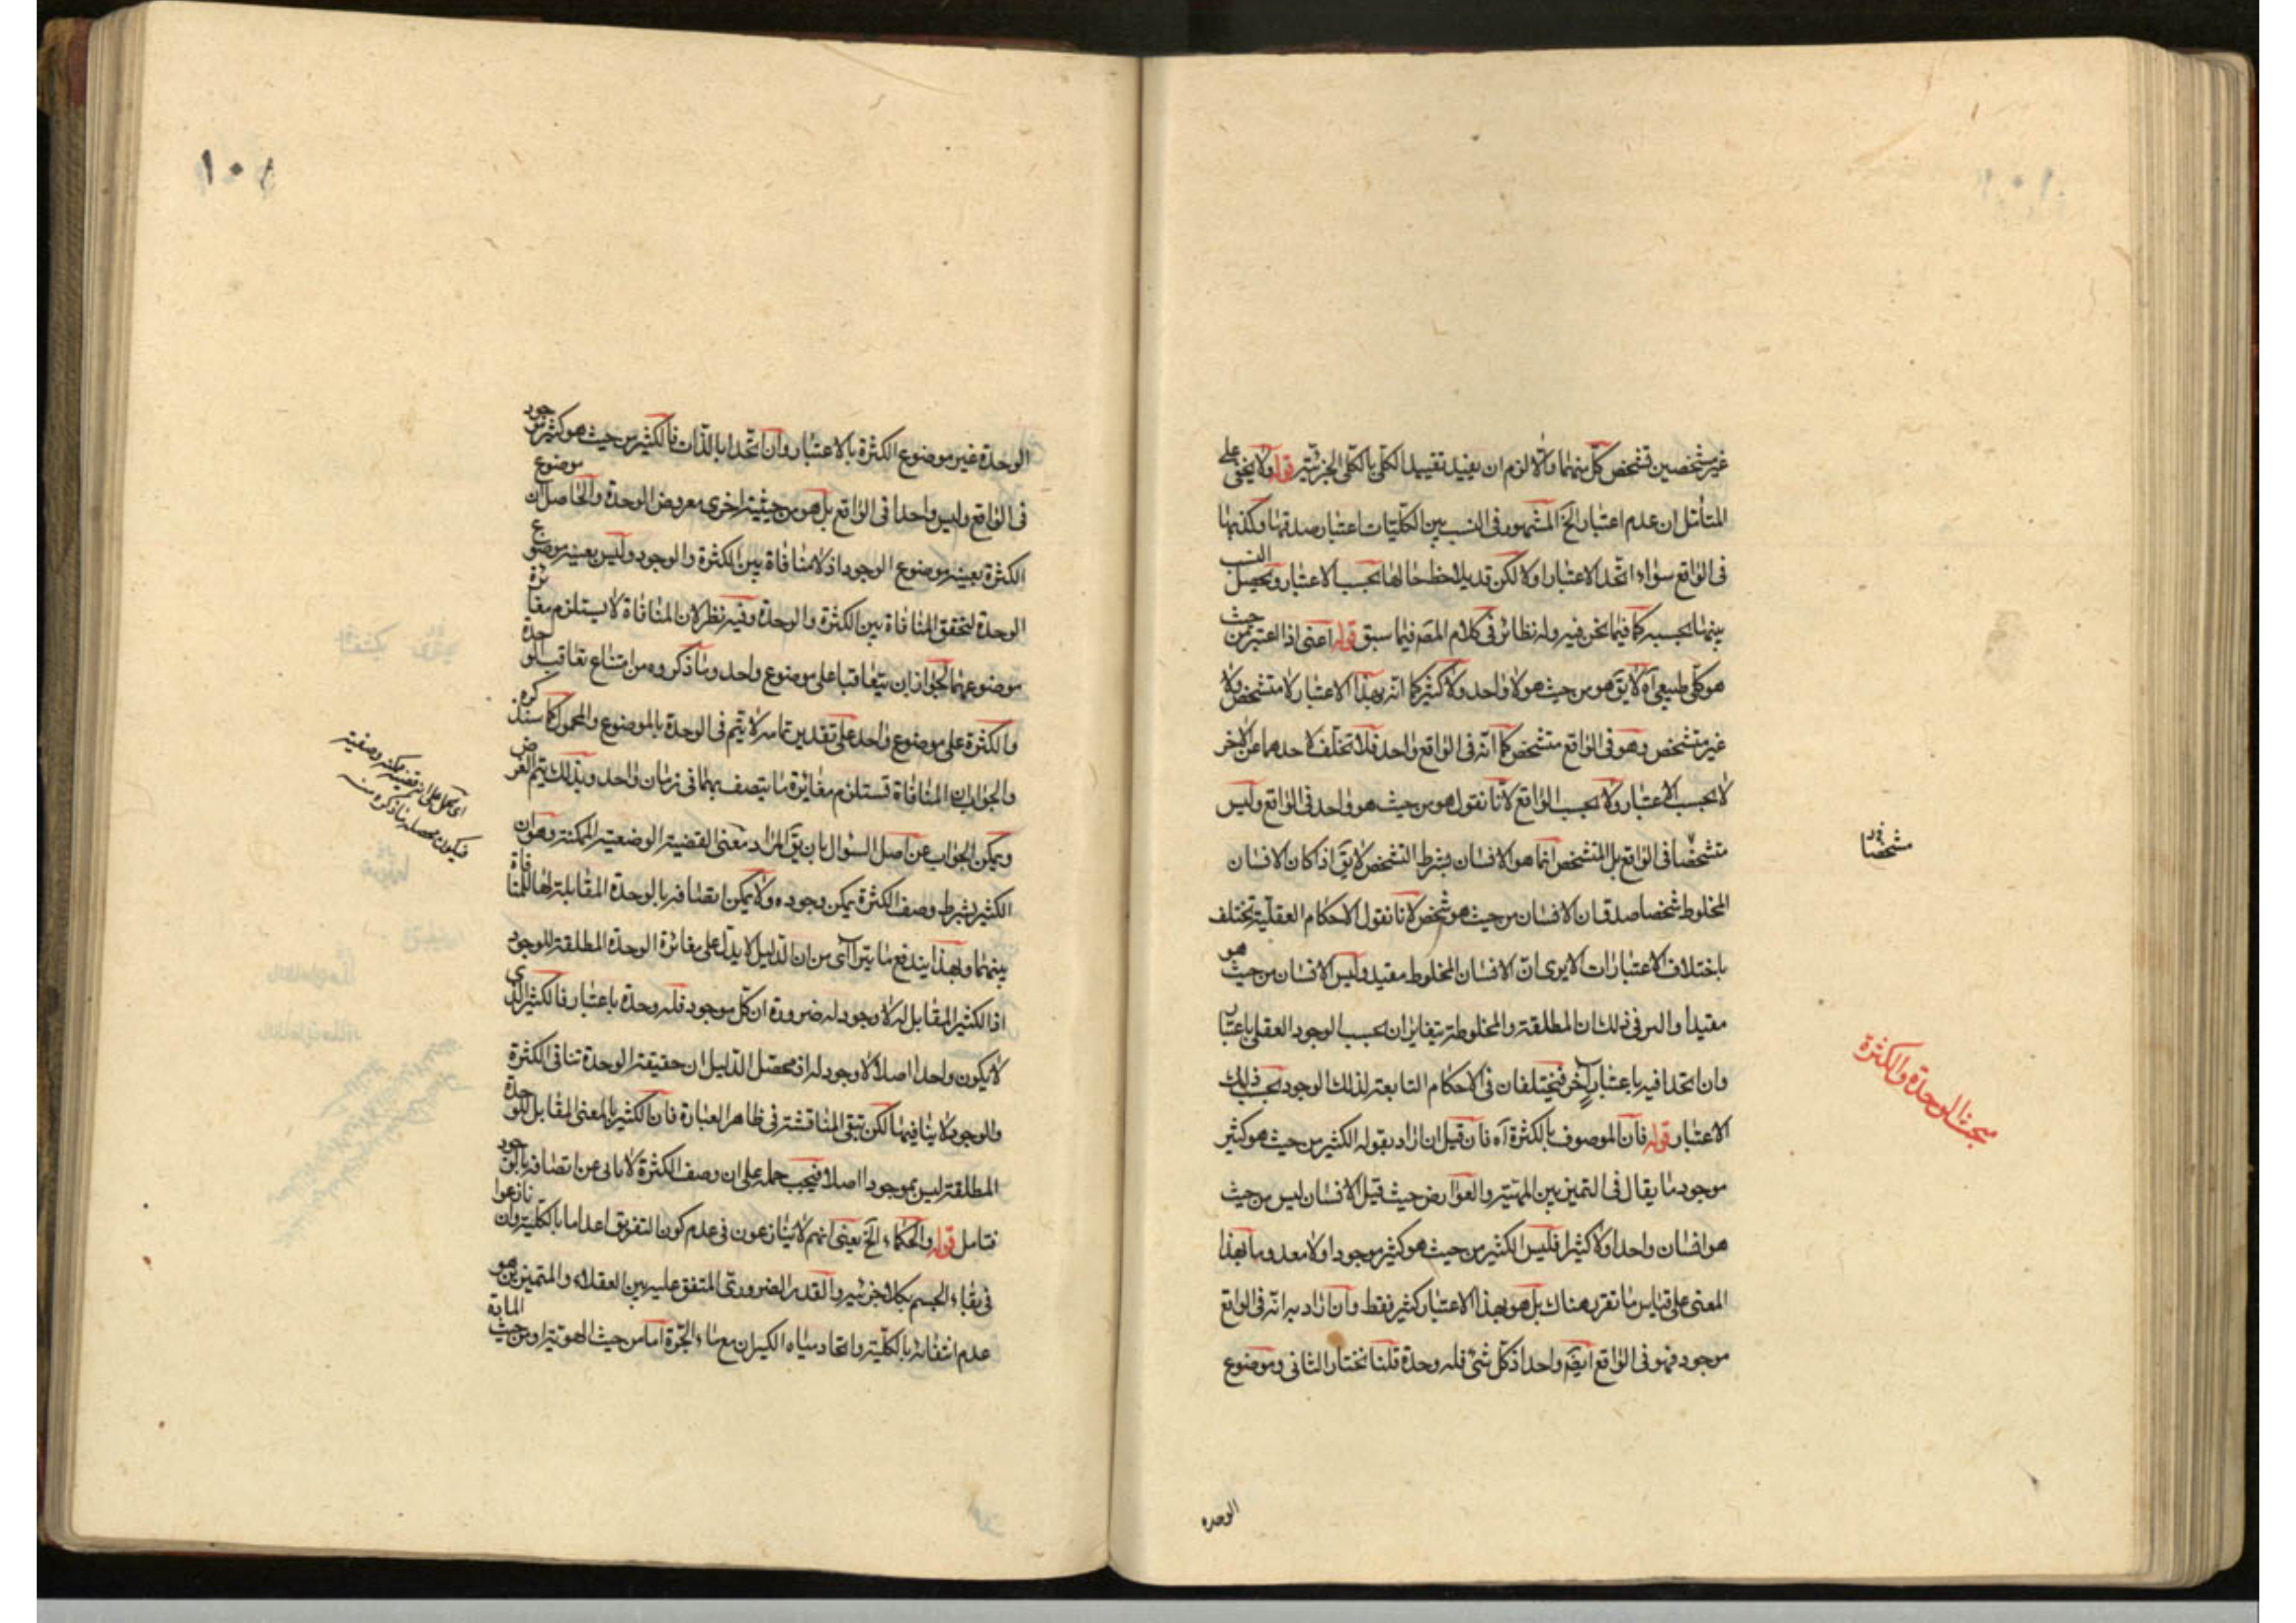 غير مشخصين تشخص كل منهما والا لزم ان يفيد تقييد الكلي بالكلي الجزئية قوله ولا يخفى على
المتأمل ان عدم اعتبار الخ المشهور في النسب بين الكليات اعتبار صدقها وكذبها
في الواقع سواء اتحد الاعتبار او لا لكن قد يلاحظ حالها بحسب الاعتبار ويحصل النسب
بينهما بحسبه كما فيما نحن فيه وله نظائر في كلام المصـ فيما سبق قوله اعني اذا اعتبر من حيث
هو كلي طبيعي آه لا يقـ هو من حيث هو لا واحد ولا كثير كما انه بهذا الاعتبار لا متشخص ولا
غير متشخص وهو في الواقع متشخص كما انه في الواقع واحد فلا تخلف لاحدهما عن الاخر
لا بحسب الاعتبار ولا بحسب الواقع لانا نقول هو من حيث هو واحد في الواقع وليس
متشخصا في الواقع بل المتشخص انما هو الانسان بشرط التشخص لا يقـ اذا كان الانسان
المخلوط شخصا صدق ان الانسان من حيث هو شخص لانا نقول الاحكام العقلية تختلف
باختلاف الاعتبارات الا يرى ان الانسان المخلوط مقيد وليس الانسان من حيث هو
مقيدا والسر في ذلك ان المطلقة والمخلوطة يتغايران بحسب الوجود العقلي باعتبار
وان اتحدا فيه باعتبار آخر فيختلفان في الاحكام التابعة لذلك الوجود بحسب ذلك
الاعتبار قوله فان الموصوف بالكثرة آه فان قيل ان اراد بقوله الكثير من حيث هو كثير
موجود ما يقال في التميز بين المهية والعوارض حيث قيل الانسان ليس من حيث
هو انسان واحدا ولا كثيرا فليس الكثير من حيث هو كثير موجودا ولا معدوما بهذا
المعنى على قياس ما تقرر هناك بل هو بهذا الاعتبار كثير فقط وان اراد به انه في الواقع
موجود فهو في الواقع ايضـ واحد اذ كل شئ فله وحدة قلنا نختار الثاني وموضوع
مشخصا
مبحث الوحدة والكثرة
الوحده
١٠١
الوحدة غير موضوع الكثرة بالاعتبار وان اتحدا بالذات فالكثير من حيث هو كثير موجود
في الواقع وليس واحدا في الواقع بل هو من حيثية اخرى معروض الوحدة والحاصل ان موضوع
الكثرة بعينه موضوع الوجود اذ لا منافاة بين الكثرة والوجود وليس بعينه موضوع
الوحدة لتحقق المنافاة بين الكثرة والوحدة وفيه نظر لان المنافاة لا يستلزم مغايرة
موضوعهما لجواز ان يتعاقبا على موضوع واحد وما ذكروه من امتناع تعاقب الوحدة
والكثرة على موضوع واحد على تقدير تمامه لا يتم في الوحدة بالموضوع والمحمول كما سنذكره
والجواب ان المنافاة تستلزم مغايرة ما يتصف بهما في زمان واحد وبذلك يتم الغرض
ويمكن الجواب عن اصل السؤال بان يقـ المراد معنى القضية الوضعية الممكنة وهو ان
الكثير بشرط وصف الكثرة يمكن وجوده ولا يمكن اتصافه بالوحدة المقابلة لها للمنافاة
بينهما وبهذا يندفع ما يتراآى من ان الدليل لا يدل على مغائرة الوحدة المطلقة للوجود
اذ الكثير المقابل له لا وجود له ضرورة ان كل موجود فله وحدة باعتبار فالكثير الذي
لا يكون واحدا اصلا لا وجود له اذ محصل الدليل ان حقيقة الوحدة تنافي الكثرة
والوجود لا ينافيها لكن تبقى المناقشة في ظاهر العبارة فان الكثير بالمعنى المقابل للوحدة
المطلقة ليس بموجود اصلا فيجب حمله على ان وصف الكثرة لا يابى عن اتصافه بالوجود
فتامل قوله والحكماء الخ يعني انهم لا ينازعون في عدم كون التفريق اعداما بالكلية وان نازعوا
في بقاء الجسم بكلا جزئيه والقدر الضروري المتفق عليه بين العقلاء والمتميزين هو
عدم انتفائه بالكلية واتحاد مياه الكيزان مع ماء الجرة اما من حيث الهوية او من حيث المادة
اي يحمل على انه قضية ممكنة وصفية
فيكون محصله ما ذكره منه